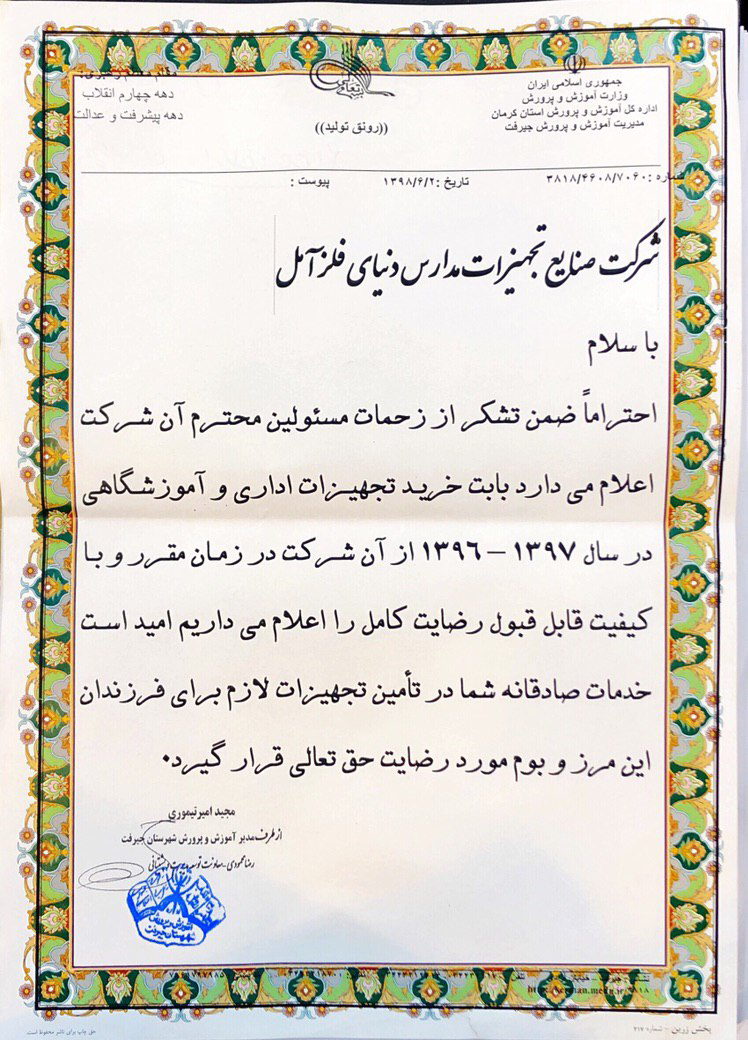 دهه چهارم انقلاب
دهه پیشرفت و عدالت
بسمه تعالی
((رونق تولید))
جمهوری اسلامی ایران
وزارت آموزش و پرورش
اداره کل آموزش و پرورش استان کرمان
مدیریت آموزش و پرورش جیرفت
شماره : ۳۸۱۸/۴۶۰۸/۷۰۶۰
تاریخ : ۱۳۹۸/۶/۲
پیوست :
شرکت صنایع تجهیزات مدارس دنیای فلز آمل
با سلام
احتراماً ضمن تشکر از زحمات مسئولین محترم آن شرکت
اعلام می دارد بابت خرید تجهیزات اداری و آموزشگاهی
در سال ۱۳۹۷ – ۱۳۹۶ از آن شرکت در زمان مقرر و با
کیفیت قابل قبول رضایت کامل را اعلام می داریم امید است
خدمات صادقانه شما در تأمین تجهیزات لازم برای فرزندان
این مرز و بوم مورد رضایت حق تعالی قرار گیرد.
مجید امیرتیموری
از طرف مدیر آموزش و پرورش شهرستان جیرفت
رضا محمودی - معاونت توسعه مدیریت و پشتیبانی
آموزش و پرورش
شهرستان جیرفت
پخش زرین – شماره ۲۱۷
حق چاپ برای ناشر محفوظ است.